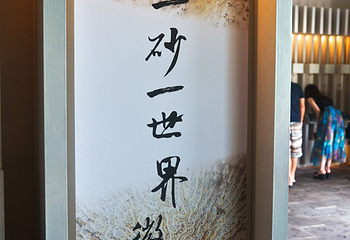 一砂一世界